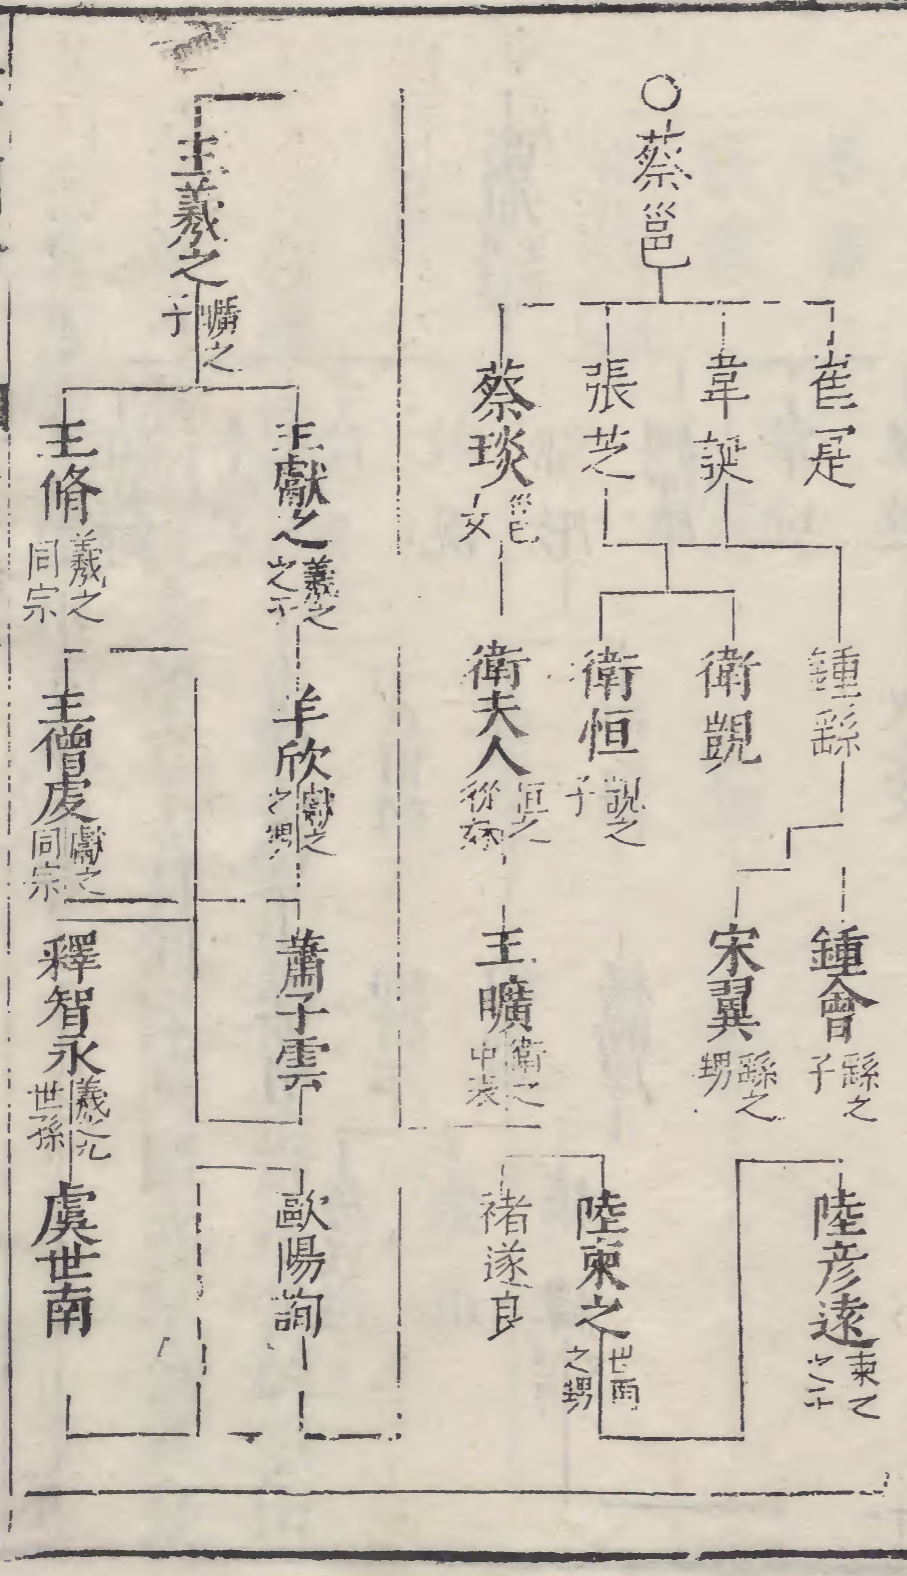 蔡邕
崔寔
韋誕
張芝
蔡琰 邕女
鍾繇
衛覬
衛恒 覬之子
衛夫人 恒之從妹
鍾會 繇之子
宋翼 繇之甥
王曠 衛之中表
陸彦遠 柬之之子
陸柬之 世南之甥
褚遂良
王羲之 曠之子
王獻之 羲之之子
王脩 羲之同宗
羊欣 獻之之甥
王僧虔 獻之同宗
蕭子雲
釋智永 羲之九世孫
歐陽詢
虞世南